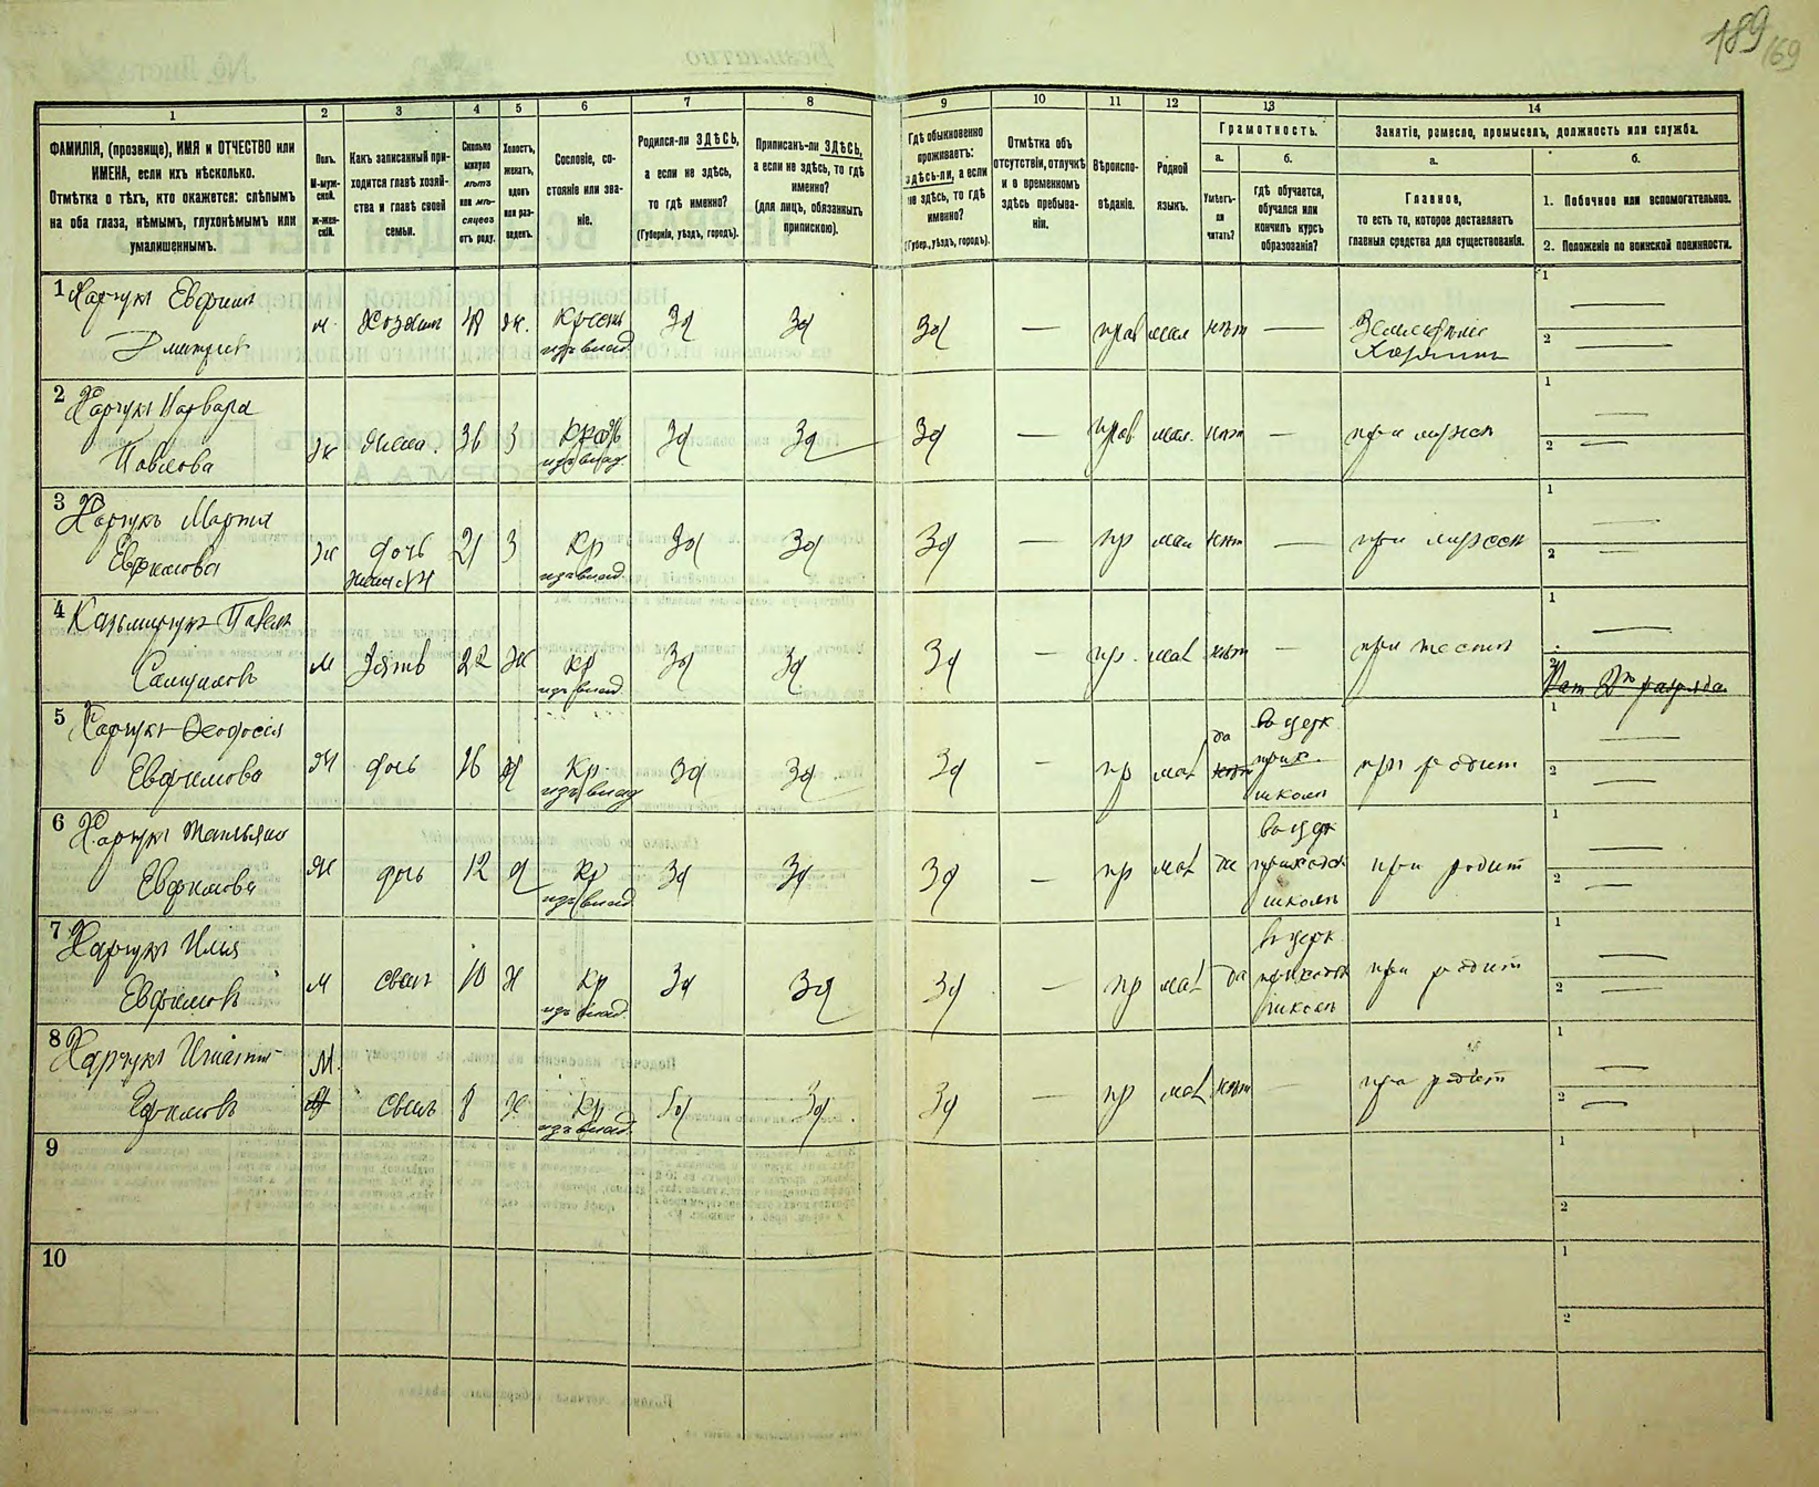 189
169
1
2
3
4
5
6
7
8
9
10
11
12
13
14
ФАМИЛІЯ, (прозвище), ИМЯ и ОТЧЕСТВО или
ИМЕНА, если ихъ нѣсколько.
Отмѣтка о тѣхъ, кто окажется: слѣпымъ
на оба глаза, нѣмымъ, глухонѣмымъ или
умалишеннымъ.
Полъ.
М-муж-
ской.
ж-жен-
скій.
Какъ записанный при-
ходится главѣ хозяй-
ства и главѣ своей
семьи.
Сколько
минуло
лѣтъ
или мѣ-
сяцевъ
отъ роду.
Холостъ,
женатъ,
вдовъ
или раз-
веденъ.
Сословіе, со-
стояніе или зва-
ніе.
Родился-ли ЗДѢСЬ,
а если не здѣсь,
то гдѣ именно?
(Губернія, уѣздъ, городъ).
Приписанъ-ли ЗДѢСЬ,
а если не здѣсь, то гдѣ
именно?
(для лицъ, обязанныхъ
припискою).
Гдѣ обыкновенно
проживаетъ:
здѣсь-ли, а если
не здѣсь, то гдѣ
именно?
(Губер., уѣздъ, городъ).
Отмѣтка объ
отсутствіи, отлучкѣ
и о временномъ
здѣсь пребыва-
ніи.
Вѣроиспо-
вѣданіе.
Родной
языкъ.
Грамотность.
а.
Умѣетъ-
ли
читать?
б.
гдѣ обучается,
обучался или
кончилъ курсъ
образованія?
Занятіе, ремесло, промыселъ, должность или служба.
а.
Главное,
то есть то, которое доставляетъ
главныя средства для существованія.
б.
1. Побочное или вспомогательное.
2. Положеніе по воинской повинности.
1 Харчукъ Евфимъ
Дмитріев
м. Хозяинъ 48 ж. Крестъ
изъ влад Зд Зд Зд — прав мал нѣтъ — Земледѣліе
Хозяинъ
1 —
2 —
2 Харчукъ Варвара
Павлова
ж жена. 36 З Крест
изъ влад. Зд Зд Зд — прав мал. нѣт — при мужѣ
1 —
2 —
3 Харчукъ Марія
Евфимова
ж дочь 21 З Кр
изъ влад. Зд Зд Зд — пр мал нѣт — при мужѣ
1 —
2 —
4 Казьмирчукъ Павелъ
м Зять 22 ж кр
изъ влад. Зд Зд Зд — пр. мал нѣт — при тестѣ
1 —
2 Рат 2го разряда
5 Харчукъ Феодосія
Евфимова
ж дочь 16 д Кр.
изъ влад Зд Зд Зд — пр мал да нѣт
въ церк
прих.
школѣ
при родит
1 —
2 —
6 Харчукъ Татьяна
Евфимова
ж дочь 12 д Кр
изъ влад. Зд Зд Зд — пр мал да
въ церк
приходск
школѣ
при родит
1 —
2 —
7 Харчукъ Илія
Евфимовъ
м сынъ 10 х Кр
изъ влад. Зд Зд Зд — пр мал да
въ церк
приходск
школѣ
при родит
1 —
2 —
8 Харчукъ Игнатій
Ефимовъ
М. сынъ 8 х Кр
изъ влад. Зд Зд Зд — пр мал нѣт — при родит
1 —
2 —
9
1
2
10
1
2